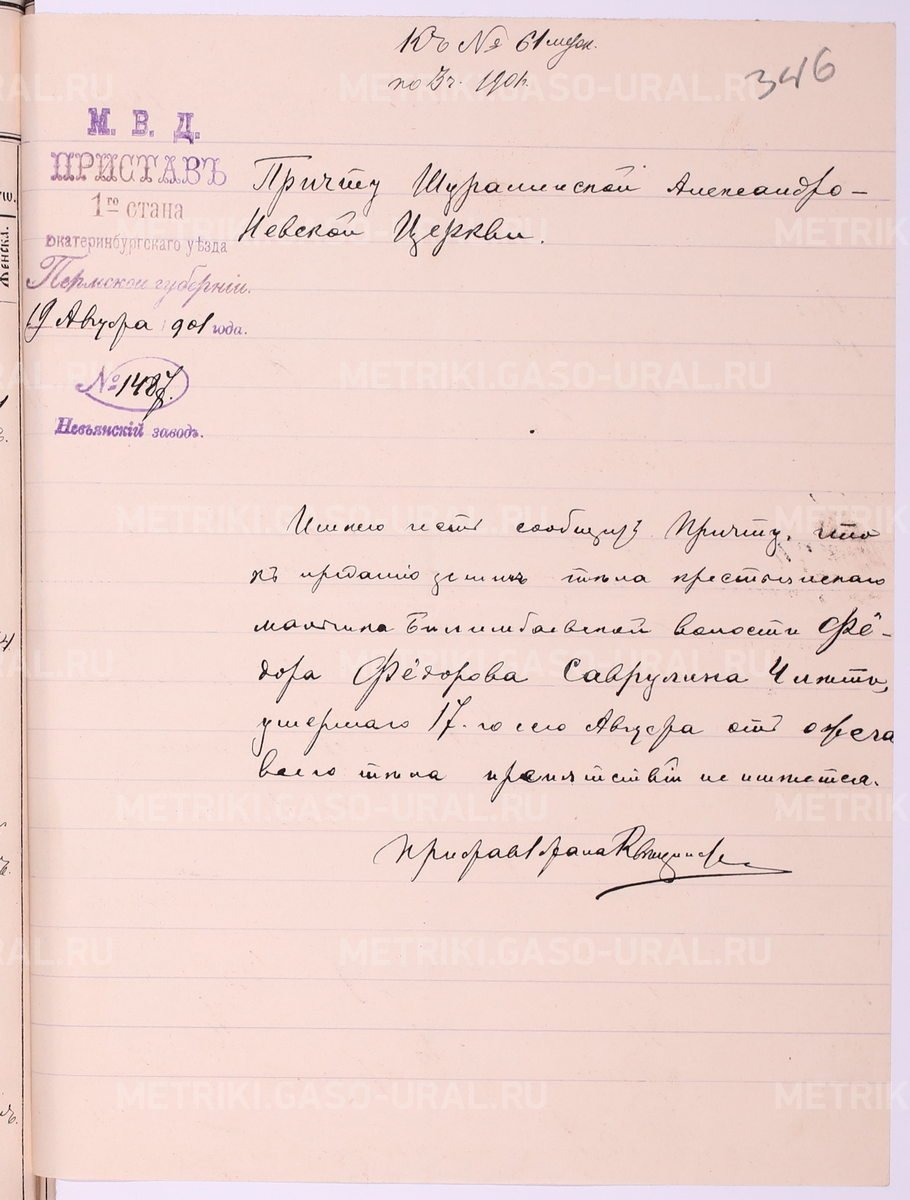 Къ № 61 муж.
по 3 ч. 1901.
346
М. В. Д.
ПРИСТАВЪ
1го стана
Екатеринбургскаго уѣзда
Пермской губерніи.
19 Августа 1901 года.
№ 1487.
Невьянскій заводъ.
Причту Шуралинской Александро-
Невской Церкви.
Имѣю честь сообщить Причту, что
къ преданію землѣ тѣла крестьянскаго
мальчика Билимбаевской волости Фё-
дора Фёдорова Саврулина 4 лѣтъ,
умершаго 17-го сего Августа отъ ожега
всего тѣла препятствій не имѣется.
Приставъ 1 стана
METRIKI.GASO-URAL.RU